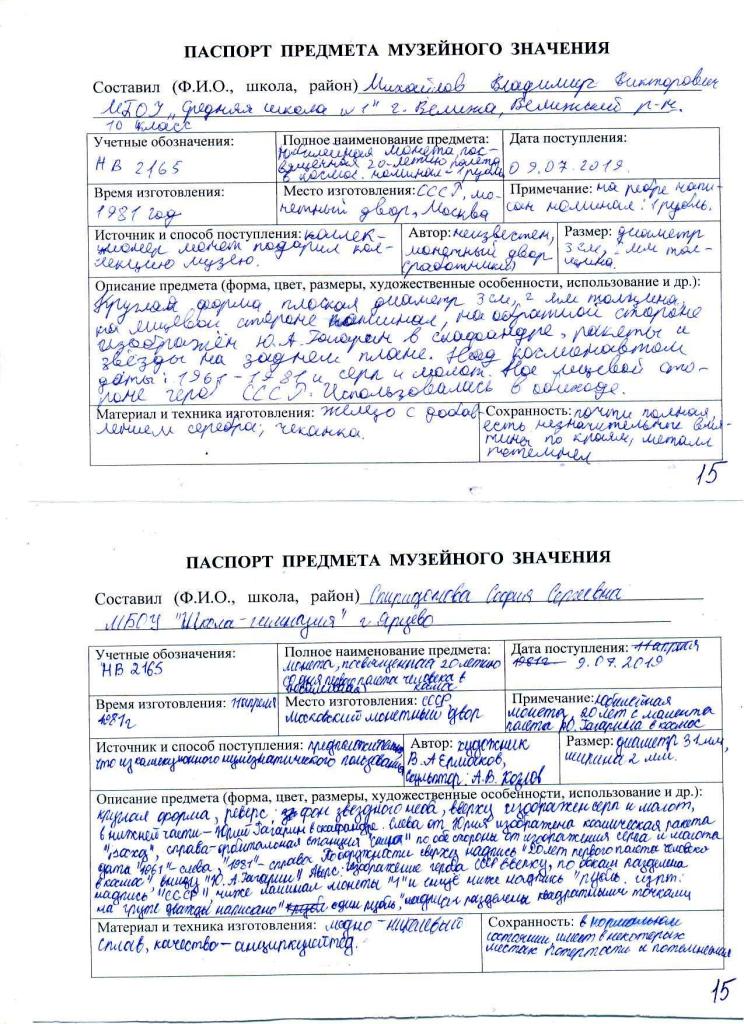 ПАСПОРТ ПРЕДМЕТА МУЗЕЙНОГО ЗНАЧЕНИЯ
Составил (Ф.И.О., школа, район) Михайлов Владимир Викторович
МБОУ „Средняя школа №1" г. Велижа, Велижский р-н.
10 класс
Учетные обозначения:
НВ 2165
Полное наименование предмета:
Юбилейная монета пос-
вященная 20-летию полета
в космос. номинал - 1 рубль
Дата поступления:
09.07.2019.
Время изготовления:
1981 год
Место изготовления: СССР, мо-
нетный двор, Москва
Примечание: на ребре напи-
сан номинал: 1 рубль.
Источник и способ поступления: коллек-
ционер монет подарил кол-
лекцию музею.
Автор: неизвестен,
монетный двор
(работники)
Размер: диаметр
3 см, 2 мм тол-
щина.
Описание предмета (форма, цвет, размеры, художественные особенности, использование и др.):
Круглая форма, плоская диаметр 3 см, 2 мм толщина,
на лицевой стороне номинал, на обратной стороне
изображён Ю.А. Гагарин в скафандре, ракеты и
звёзды на заднем плане. Над космонавтом
даты: 1961 - 1981 и серп и молот. На лицевой сто-
роне герб СССР. Использовалась в обиходе.
Материал и техника изготовления: железо с добав-
лением серебра; чеканка.
Сохранность: почти полная,
есть незначительные вмя-
тины по краям, металл
потемнел
15
ПАСПОРТ ПРЕДМЕТА МУЗЕЙНОГО ЗНАЧЕНИЯ
Составил (Ф.И.О., школа, район) Спиридонова София Сергеевна
МБОУ "Школа-гимназия" г Ярцево
Учетные обозначения:
НВ 2165
Полное наименование предмета:
монета, посвященная 20-летию
со дня первого полета человека в
космос
Дата поступления: 11 апреля
1981г 9.07.2019
Время изготовления: 11 апреля
1981г
Место изготовления: СССР
Московский монетный двор
Примечание: Юбилейная
монета, 20 лет с момента
полета Ю. Гагарина в космос
Источник и способ поступления: предположительно,
что из коллекционного нумизматического пользования
Автор: художник
В.А Ермаков,
скульптор: А.В. Козлов
Размер: диаметр 31 мм,
ширина 2 мм.
Описание предмета (форма, цвет, размеры, художественные особенности, использование и др.):
круглая форма, реверс: фон звездного неба, вверху изображен серп и молот,
в нижней части - Юрий Гагарин в скафандре. Слева от Юрия изображена космическая ракета
"Восход", справа-орбитальная станция "Салют" по обе стороны от изображения серпа и молота
дата "1961"- слева, "1981"- справа. По окружности сверху надпись "20 лет первого полета человека
в космос", внизу "Ю. А. Гагарин". Аверс: изображение герба СССР вверху, по бокам разделена
надпись "СССР", ниже номинал монеты "1" и снизу ниже надпись "рубль.
на гурте дважды написано" один рубль", надписи разделены квадратными точками
Материал и техника изготовления: медно-никелевый
сплав, качество-анциркулейтед.
Сохранность: в нормальном
состоянии, имеет в некоторых
местах потертости и потемнения
15